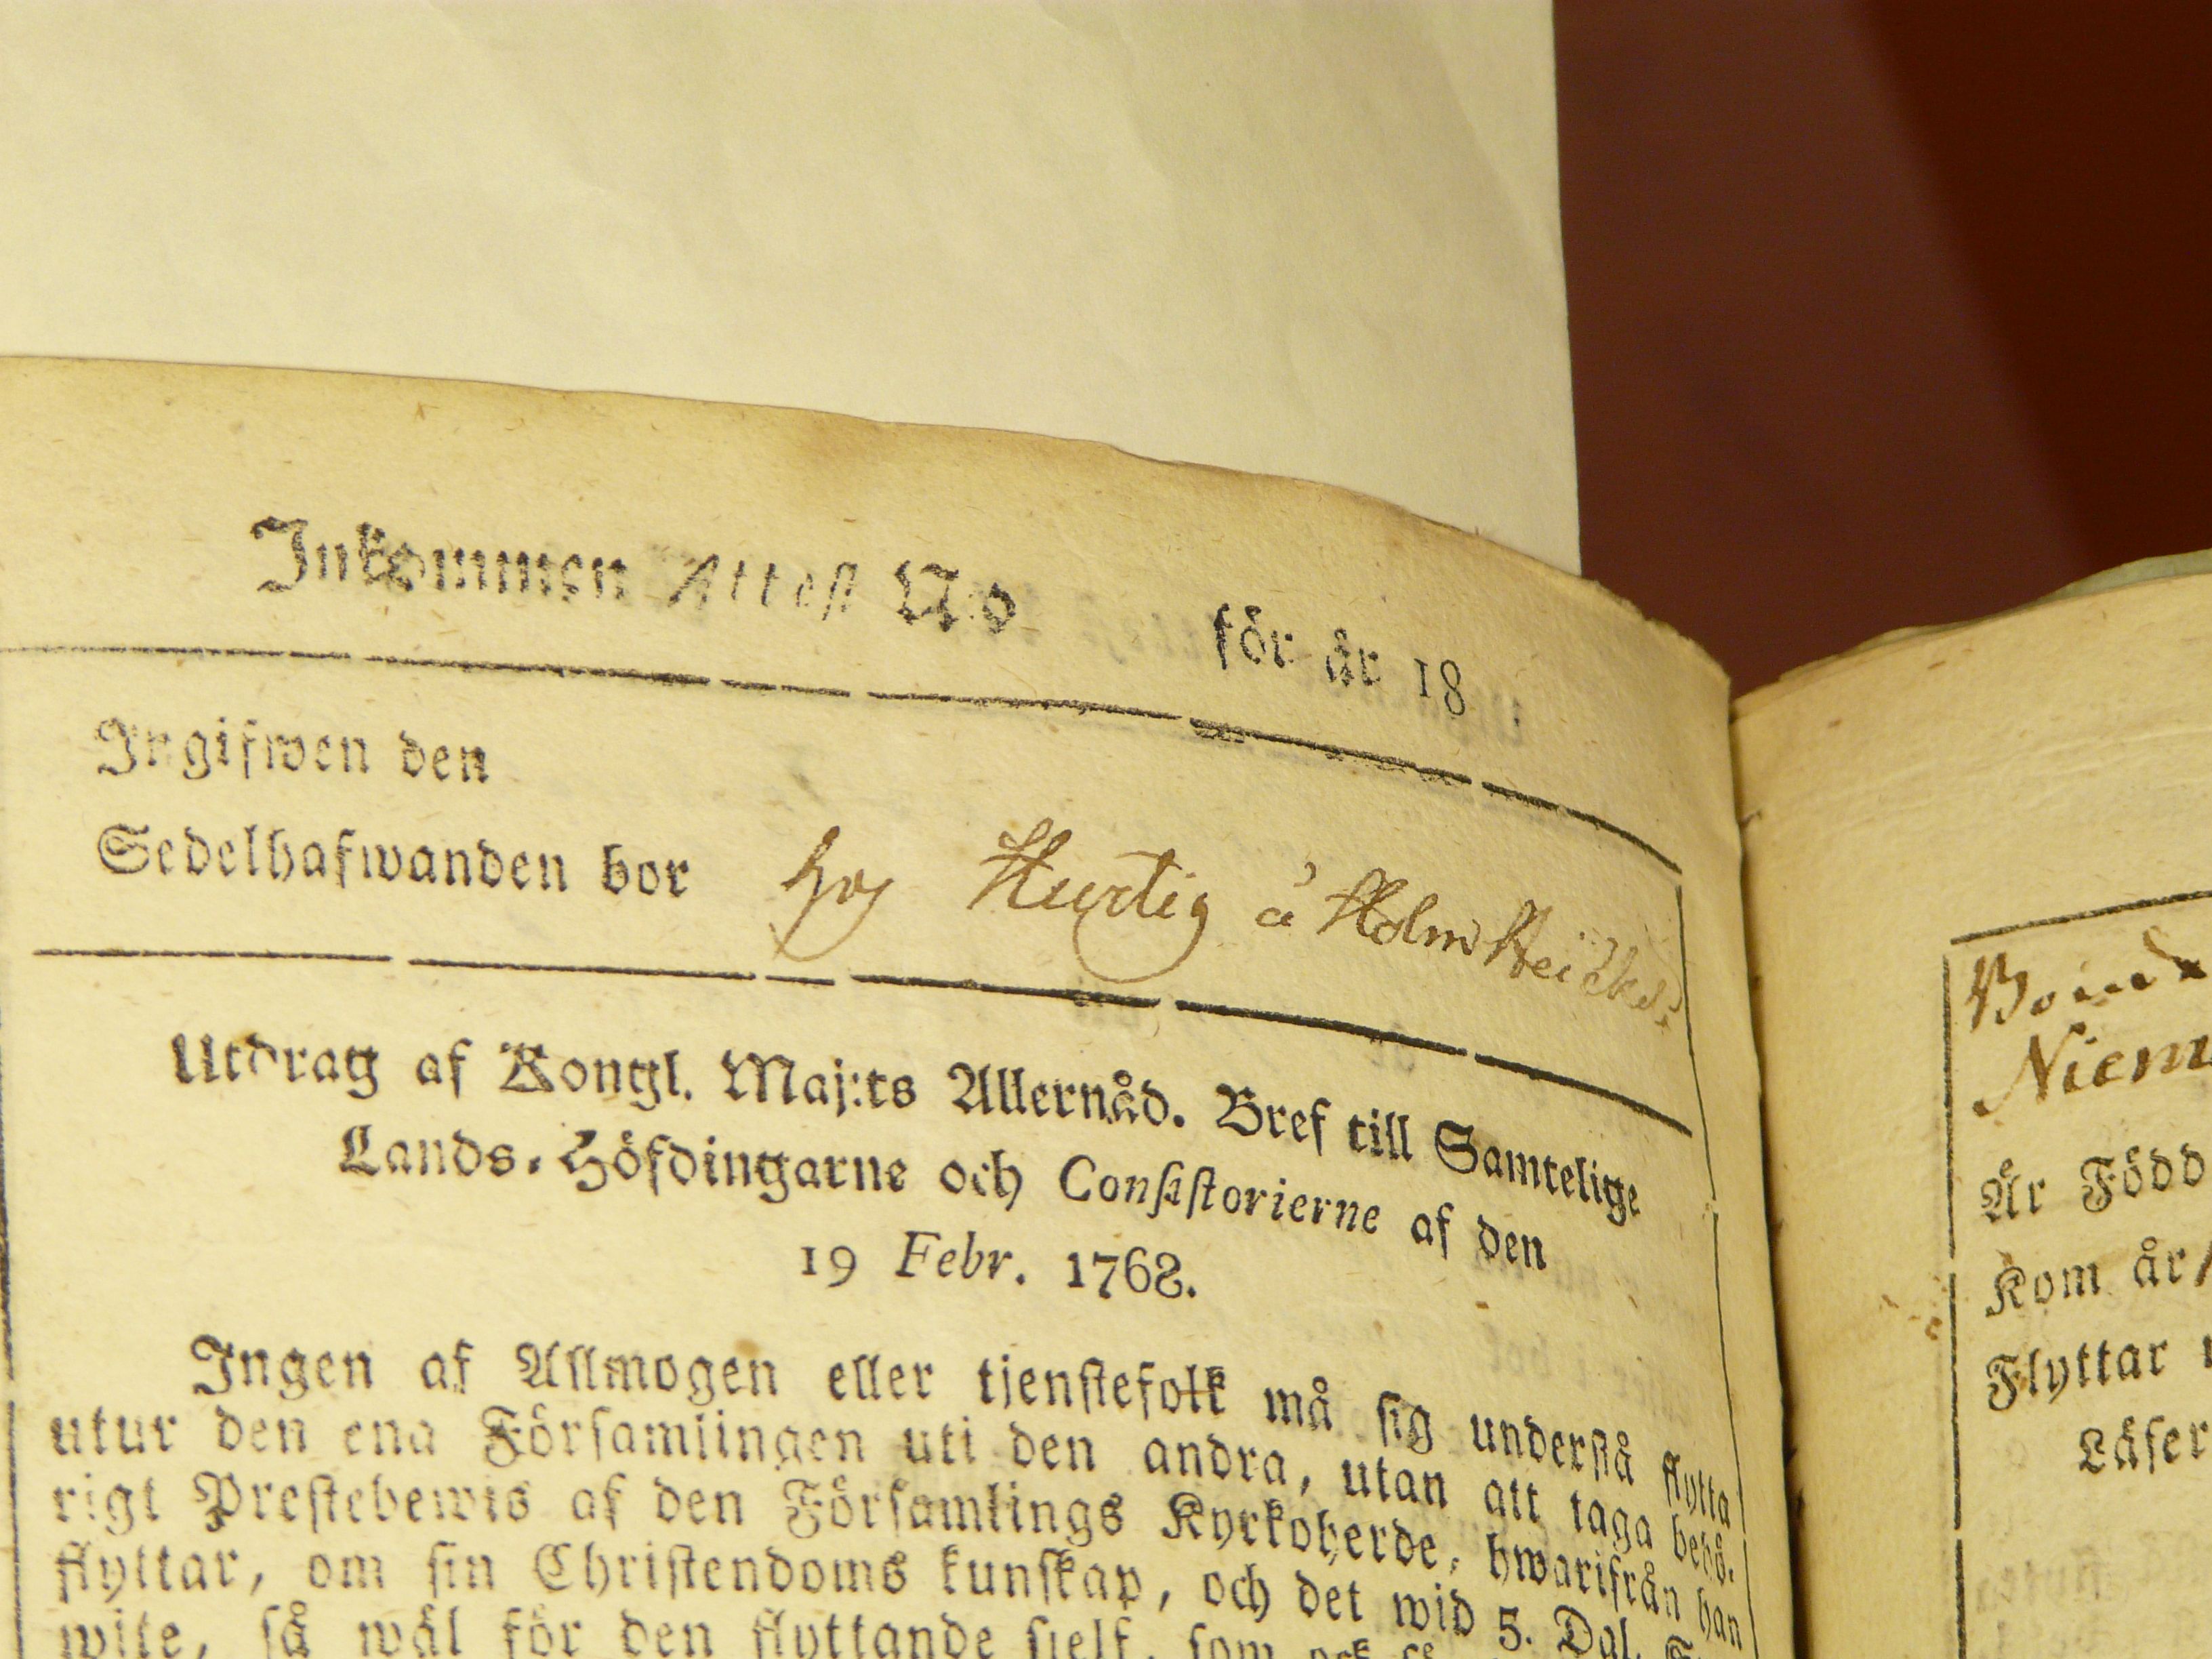 Inkommen Attest No för år 18 .
Ingifwen den
Sedelhafwanden bor hos Hurtig å Holm
Utdrag af Kongl. Maj:ts Allernåd. Bref till Samtelige
Lands-Höfdingarne och Consistorierne af den
19 Febr. 1768.
Ingen af Allmogen eller tjenstefolk må sig understå flytta
utur den ena Församlingen uti den andra, utan att taga behö-
rigt Prestebewis af den Församlings Kyrkoherde, hwarifrån han
flyttar, om sin Christendoms kunskap, och det wid 5. Dal.
wite, så wäl för den flyttande sielf, som ock
Niem
Är Född
Kom år
Flyttar
Läser